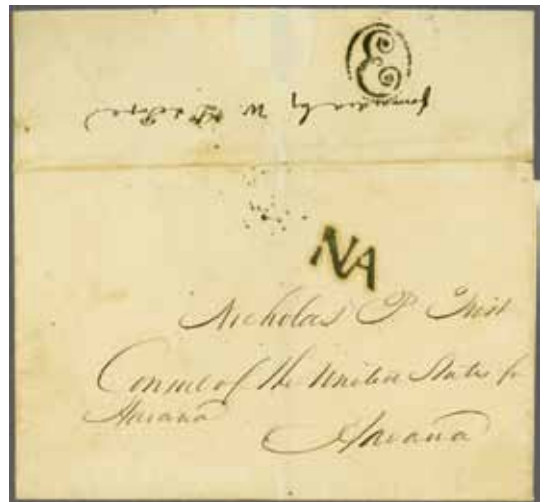 E
NA
Nicholas P Trist
Consul of the United States for
Havana
Havana